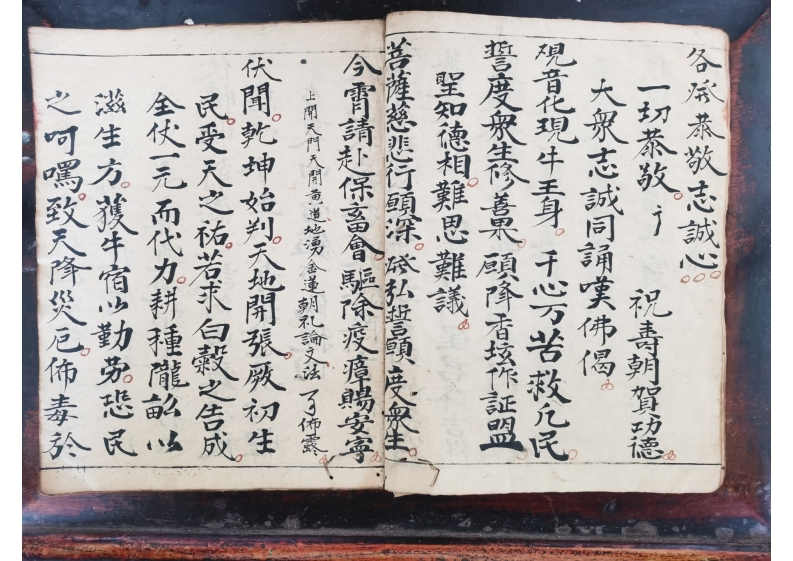 各承恭敬志誠心
一切恭敬 祝壽朝賀功德
大衆志誠同誦嘆佛偈
观音化現牛王身千心万苦救凢民
誓度衆生修善果願降香垓作証盟
聖知德相難思難議
菩薩慈悲行願深 弘誓願度衆生
今霄請赴保畜會驅除疫瘴賜安寧
上開天門天開黄道地湧金蓮朝礼論文法了佈露
伏聞乾坤始判天地開張厥初生
民受天之祐若求白穀之告成
全伏一元而代力耕種隴畆以
滋生方獲牛宿以勤劳恐民
之呵嘿致天降災厄佈毒於